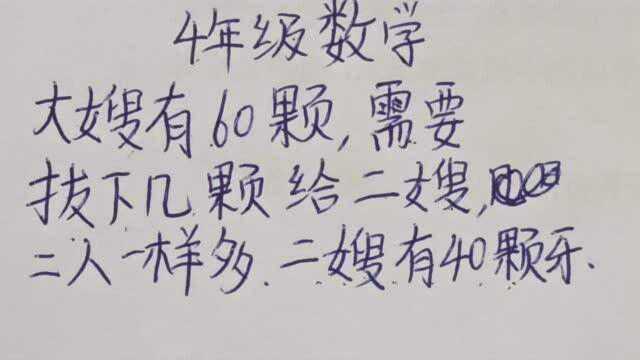 4年级数学
大嫂有60颗,需要
拔下几颗给二嫂,
二人一样多.二嫂有40颗牙.